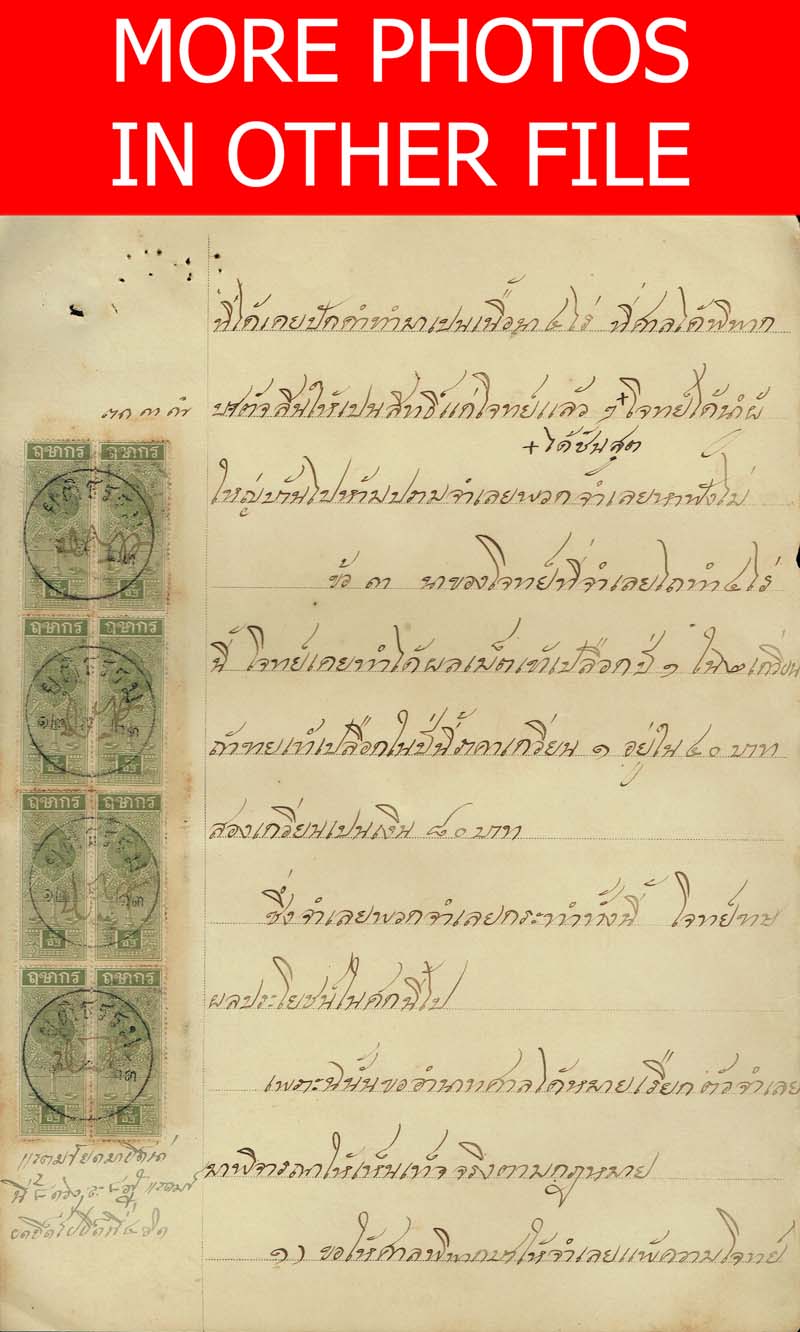 MORE PHOTOS
IN OTHER FILE
นี่ได้เคยปักดำทำมาเปนเนื้อนา ๔ ไร่ นี่ศาลได้พิพาก
ตัดสินให้เปนสิทธิ์แก่โจทย์แล้ว ๆ + โจทย์ได้นำผู้
+ ได้ชันสูต
ใหญ่บ้านไปห้ามปรามจำเลยพวกจำเลยหาฟังไม่
ข้อ ๓ นาของโจทย์ที่จำเลยไถทำ ๔ ไร่
นี้ โจทย์เคยทำได้ผลเม็ดเข้าเปลือกปี ๑ ใน ๒ เกรียน
ถ้าขายเข้าเปลือกในปีนี้ราคาเกรียน ๑ อยู่ใน ๔๐ บาท
สองเกรียนเปนเงิน ๘๐ บาท
ซึ่งจำเลยพวกจำเลยกระทำทั้งนี้ โจทย์ขาด
ผลประโยชน์ในศกนี้ไป
เพราะนี้นั้นขออำนาทศาลได้หมายเรียกตัวจำเลย
มาพิจารณาให้เห็นเท็จจริงตามกฎหมาย
๑) ขอให้ศาลพิพากษาให้จำเลยแพ้ความโจทย์
ฤชากร ฤชากร
ยุติธรรม
ฤชากร ฤชากร
ยุติธรรม
ฤชากร ฤชากร
ยุติธรรม
ฤชากร ฤชากร
ยุติธรรม